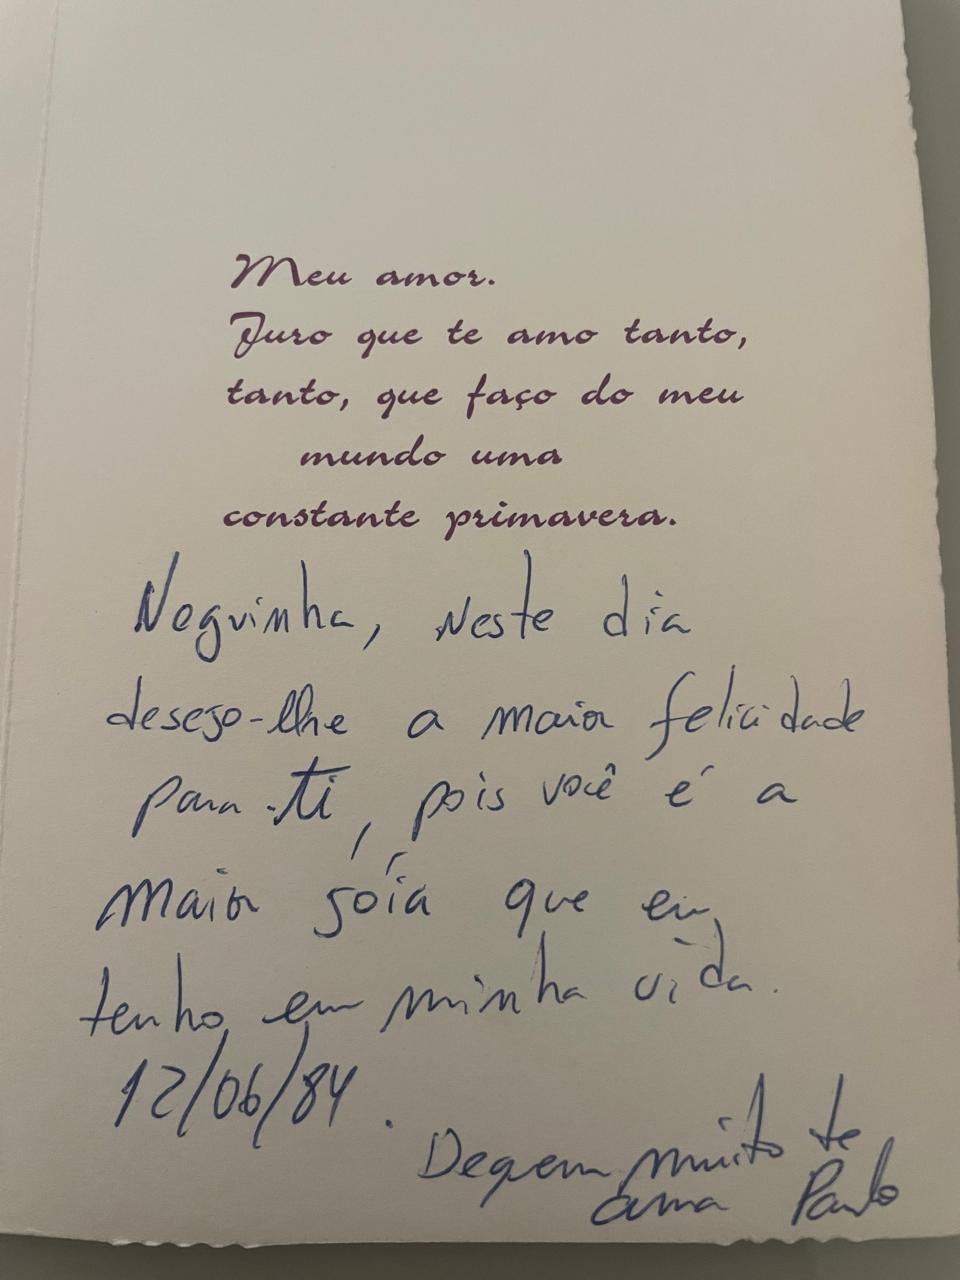 Meu amor.
Juro que te amo tanto,
tanto, que faço do meu
mundo uma
constante primavera.
Neguinha, neste dia
desejo-lhe a maior felicidade
para ti, pois você é a
maior jóia que eu
tenho em minha vida.
12/06/84.
De quem muito te
ama Paulo